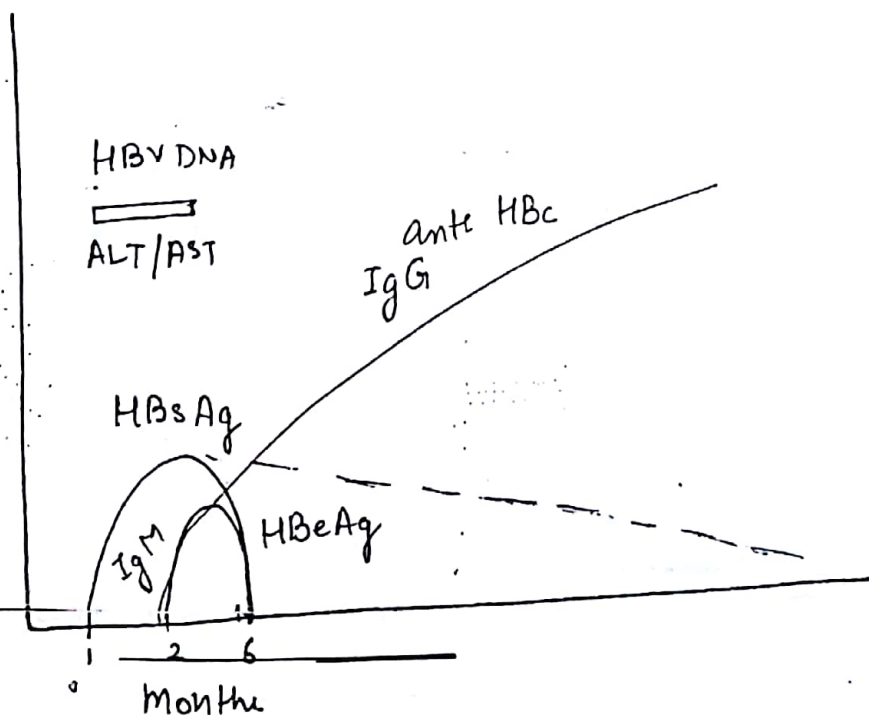 HBV DNA
ALT/AST
anti HBc
IgG
HBsAg
IgM
HBeAg
1 2 6
Months